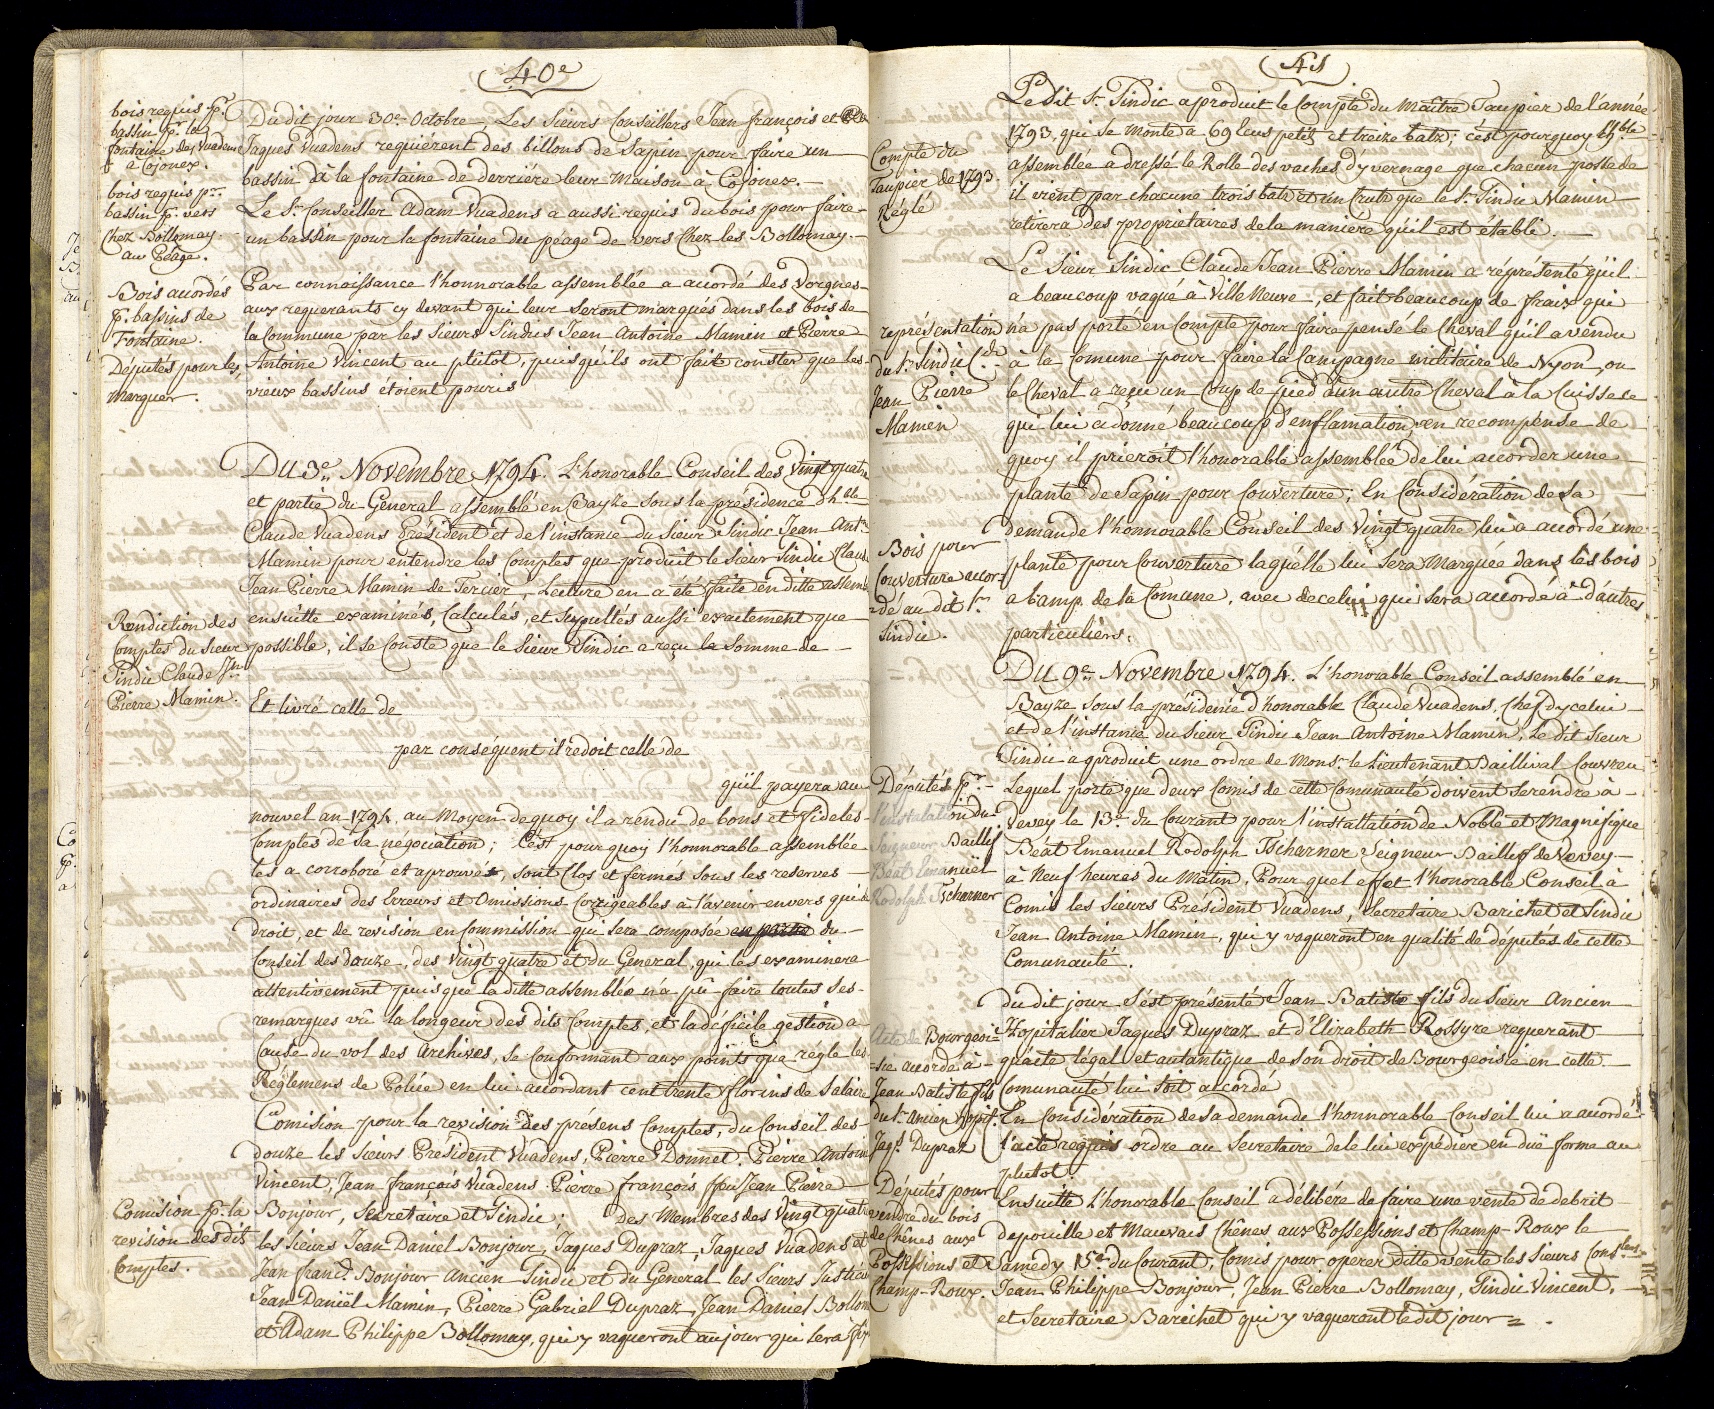 40e
bois requis p.r
bassin p.r la
fontaine des Vuadens
à Cojonex.
bois requis pr.
bassin p.r vers
Chez Bollomay
au Péage.
Bois accordés
p.r bassins de
Fontaine.
Députés pour les
marquer.
Du dit jour 30e Octobre, Les Sieurs Conseillers Jean françois et
Jaques Vuadens requiérent des billons de Sapin pour faire un
bassin à la fontaine de derriére leur Maison à Cojonex.
Le Sr Conseiller Adam Vuadens a aussi requis du bois pour faire
un bassin pour la fontaine du péage de vers Chez les Bollomay.
Par connoissance l'honnorable assemblée a accordé des Vorgnes
aux requerants cy devant qui leur seront marqués dans les bois de
la Commune par les Sieurs Sindics Jean Antoine Mamin et Pierre
Antoine Vincent au plûtot, puis qu'ils ont fait conster que les
vieux bassins étoient pouris
Du 3e Novembre 1794. L'honorable Conseil des Vingt quatre
et partie du Géneral assemblé en Bayze sous la présidence d'h.ble
Claude Vuadens Président et de l'instance du Sieur Sindic Jean Ant.e
Mamin pour entendre les Comptes que produit le Sieur Sindic Claude
Jean Pierre Mamin de Tercier, Lecture en a été faite en ditte assemb
ensuitte examinés, Calculés, et Supultés aussi exactement que
possible, il se Conste que le Sieur Sindic a reçu la Somme de
Et livré celle de
par conséquent il redoit celle de
qu'il payera au
Rendiction des
Comptes du Sieur
Sindic Claude Jn
Pierre Mamin.
nouvel an 1794, au Moyen dequoy il a rendu de bons et fideles
Comptes de Sa négociation; C'est pourquoy l'honnorable assemblée
les a corroboré et aprouvés, sont Clos et fermés sous les reserves
ordinaires des Erreurs et Omissions Corrigeables à l'avenir envers qui de
droit, et de révision en Commission qui Sera composée en partie du
Conseil des Douze, des Vingt quatre et du Géneral, qui les examinera
attentivement puisque la ditte assemblée n'a pû faire toutes ses
remarques vû la longeur des dits Comptes, et la déficile gestion a
Cause du vol des Archives, se Conformant aux points qu'a régle les
Réglemens de Police en lui accordant cent trente florins de Salaire
Comision pour la revision des présens Comptes, du Conseil des
douze les Sieurs Président Vuadens, Pierre Donnet. Pierre Antoine
Vincent, Jean françois Vuadens Pierre françois ffeu Jean Pierre
Bonjour, Secretaire et Sindic; des Membres des Vingt quatre
les Sieurs Jean Daniel Bonjour, Jaques Dupraz, Jaques Vuadens et
Jean franç.s Bonjour Ancien Sindic et du Géneral les Sieurs Justicier
Jean Daniël Mamin, Pierre Gabriel Dupraz, Jean Daniel Bollom
et Adam Philippe Bollomay, qui y vaqueront au jour qui sera fix
Comision p.r la
revision des dit
Comptes.
41
Le dit Sr. Sindic a produit le Compte du Maitre Taupier de l'année
1793. qui se monte à 69 leus petit et treize batz; c'est pourquoy l'h.ble
assemblée a dressé le Rolle des vaches d'yvernage que chacun possede
il vient par chacune trois batz et un Cruts que le Sr. Sindic Mamin
retirera des propriétaires de la maniére qu'il est établi.
Compte du
Taupier de 1793.
Réglé
Le Sieur Sindic Claude Jean Pierre Mamin a réprésenté qu'il
a beaucoup vaqué à Ville Neuve, et fait beaucoup de fraix qui
n'a pas porté en Compte pour faire pensé le Cheval qu'il a vendu
à la Comune pour faire la Campagne militaire de Nyon, ou
le Cheval a reçu un Coup de pied d'un autre Cheval à la Cuisse ce
qui lui a donné beaucoup d'enflamation, en recompense de
quoy il prieroit l'honorable assemblée de lui accorder une
plante de Sapin pour Couverture; En Considération de sa
demande l'honnorable Conseil des Vingt quatre lui a accordé une
plante pour Couverture laquélle lui Sera Marquée dans les bois
a bamp. de la Comune, avec de celui qui Sera accordé à d'autres
particuliers.
représentation
du Sr. Sindic C.de
Jean Pierre
Mamin
Bois pour
Couverture accor-
dé au dit Sr
Sindic.
Du 9e Novembre 1794. L'honorable Conseil assemblé en
Bayze sous la présidence d'honorable Claude Vuadens, Chef dycelui
et de l'instance du Sieur Sindic Jean Antoine Mamin, Le dit Sieur
Sindic a produit une ordre de Mons.r le Lieutenant Baillival Couvreu
Lequel porte que deux Comis de cette Comunauté doivent se rendre à
Vevey le 13e du Courant pour l'installation de Noble et Magnifique
Béat Emanuel Rodolph Tscharner Seigneur Baillif de Vevey
à Neuf heures du Matin, Pour quel effet l'honorable Conseil à
Comis les Sieurs Président Vuadens, Secretaire Barichet et Sindic
Jean Antoine Mamin, qui y vaqueront en qualité de députés de cette
Comunauté.
Députés p.r
l'instalation du
Seigneur Baillif
Béat Emanuël
Rodolph Tscharner
du dit jour S'est présenté Jean Batiste fils du Sieur Ancien
Hopitalier Jaques Dupraz et d'Elizabeth Rossyre requerant
qu'acte légal et autantique de son droit de Bourgeoisie en cette
Comunauté lui soit accordé
En Consideration de Sa demande l'honnorable Conseil lui a accordé
l'acte requis ordre au Secretaire de le lui expédier en duë forme au
plutot
Acte de Bourgeoi-
sie accordé à
Jean Batiste fils
du Sr. ancien hopit.
Jaq.s Dupraz
Ensuitte L'honorable Conseil a délibéré de faire une vente de debrit
depouille et Mauvais Chênes aux Possessions et Champ-Roux le
Samedy 15e du Courant, Comis pour operer ditte vente les Sieurs Cons.lers
Jean Philippe Bonjour, Jean Pierre Bollomay, Sindic Vincent,
et Secretaire Barichet qui y vaqueront le dit jour
Députés pour
vendre du bois
de Chênes aux
Possessions et
Champ-Roux.